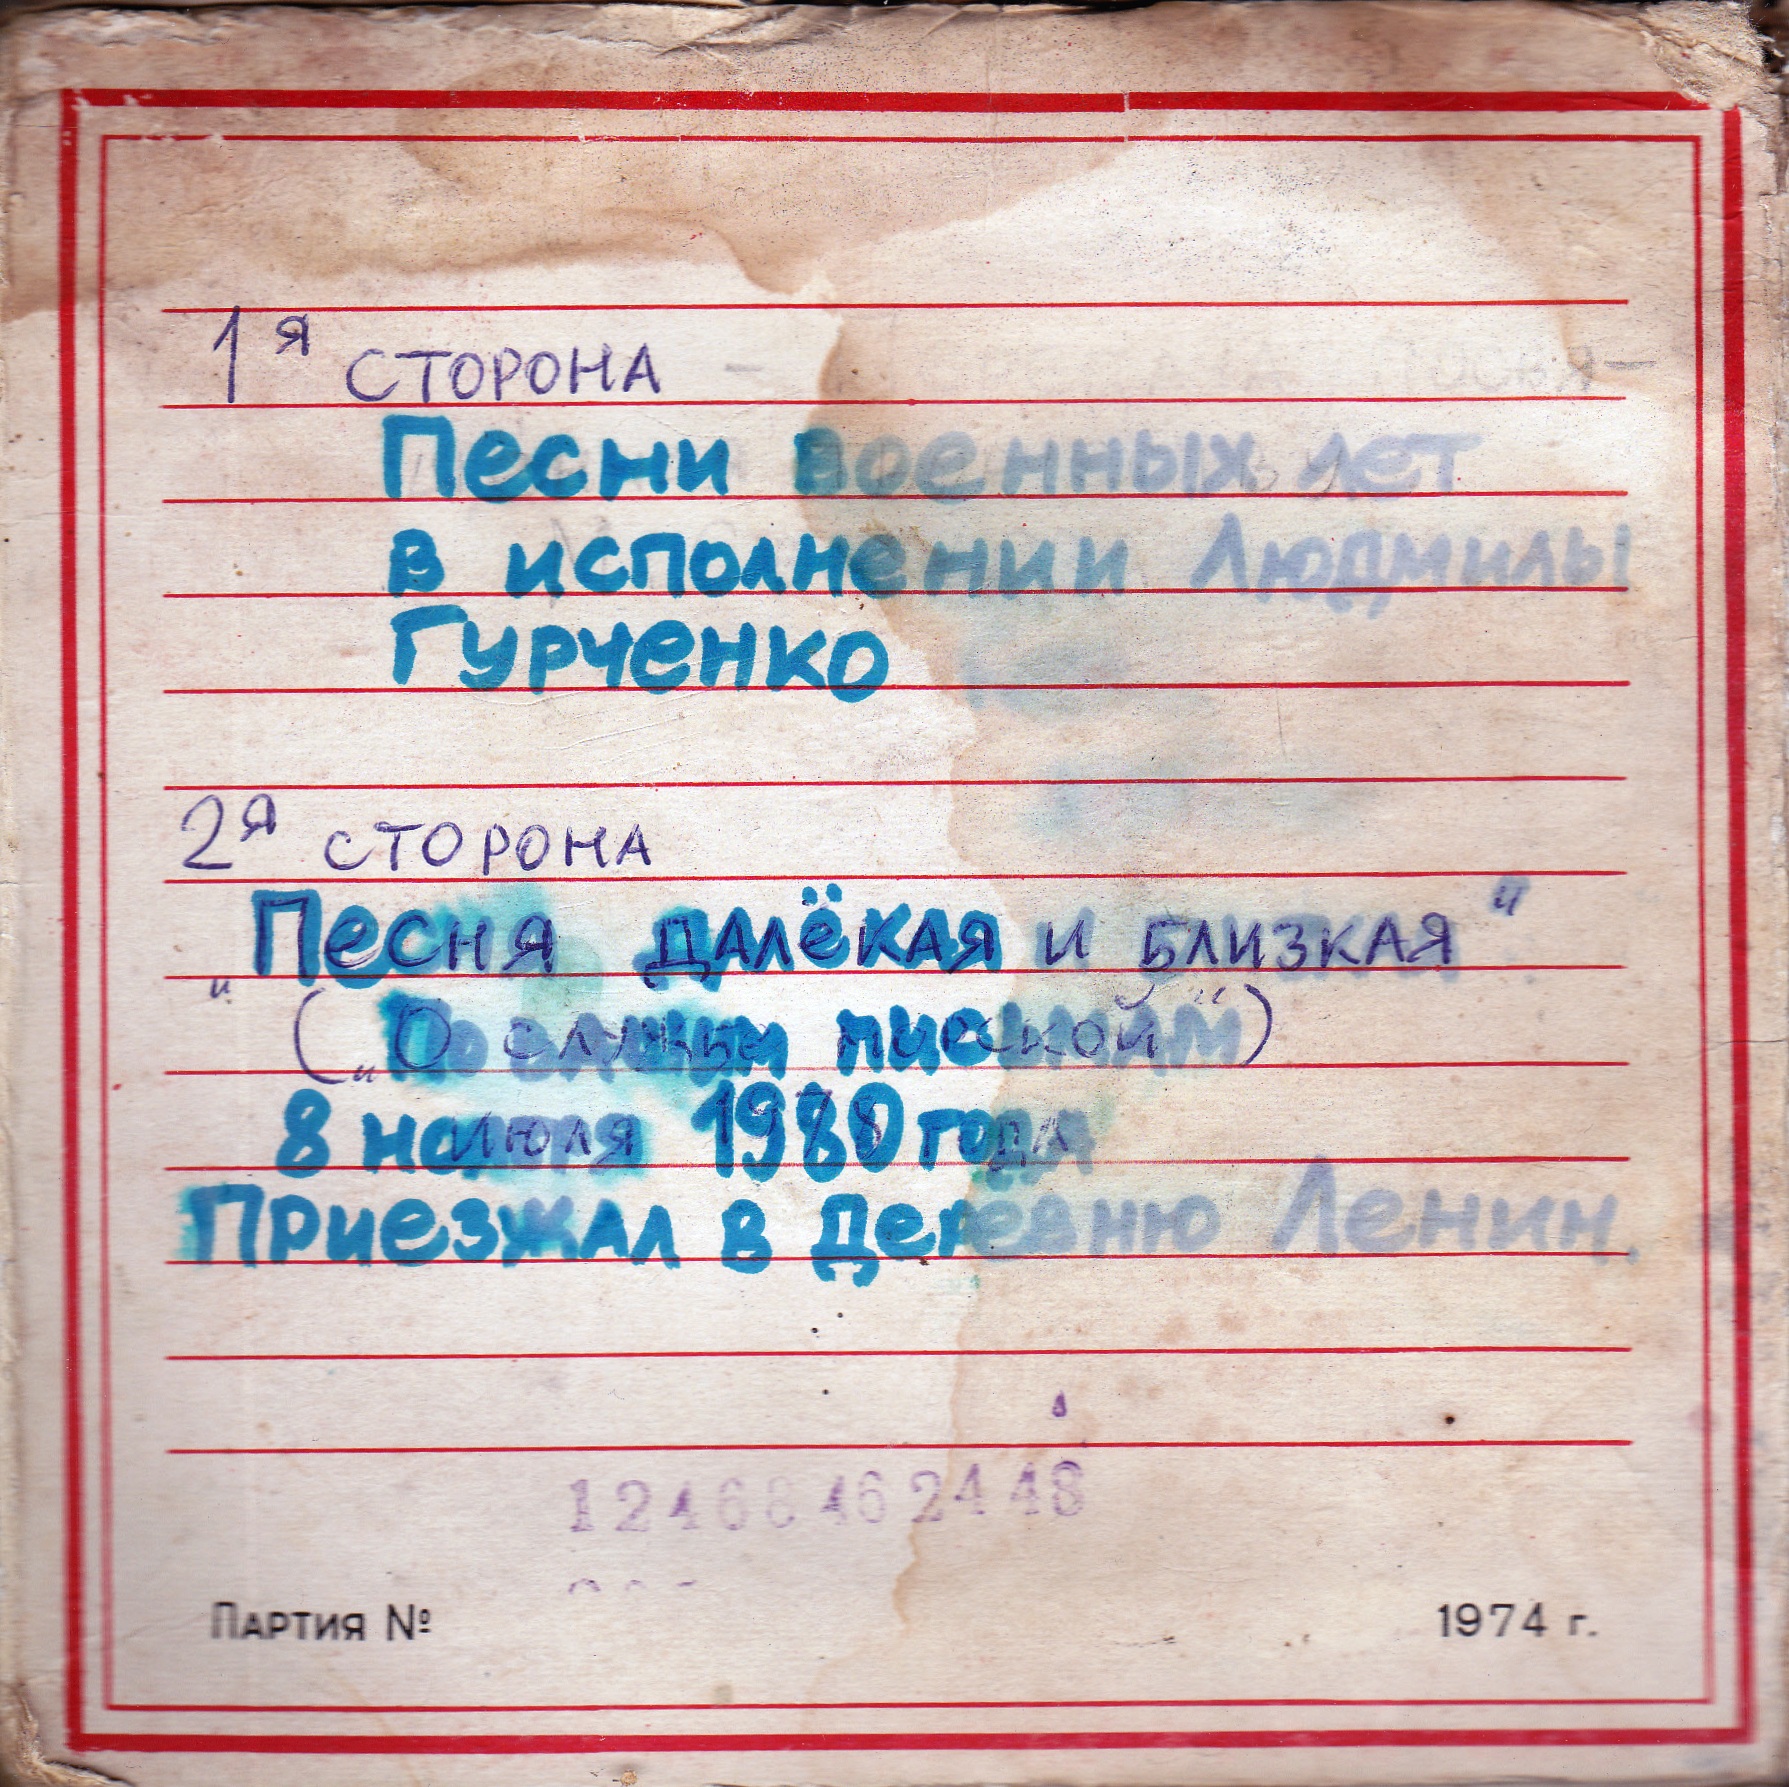 1я сторона
Песни военных лет
в исполнении Людмилы
Гурченко
2я сторона
Песня далёкая и близкая"
8 июля 19 0 года
Приезжал в деревню Ленин.
Партия №
1974 г.